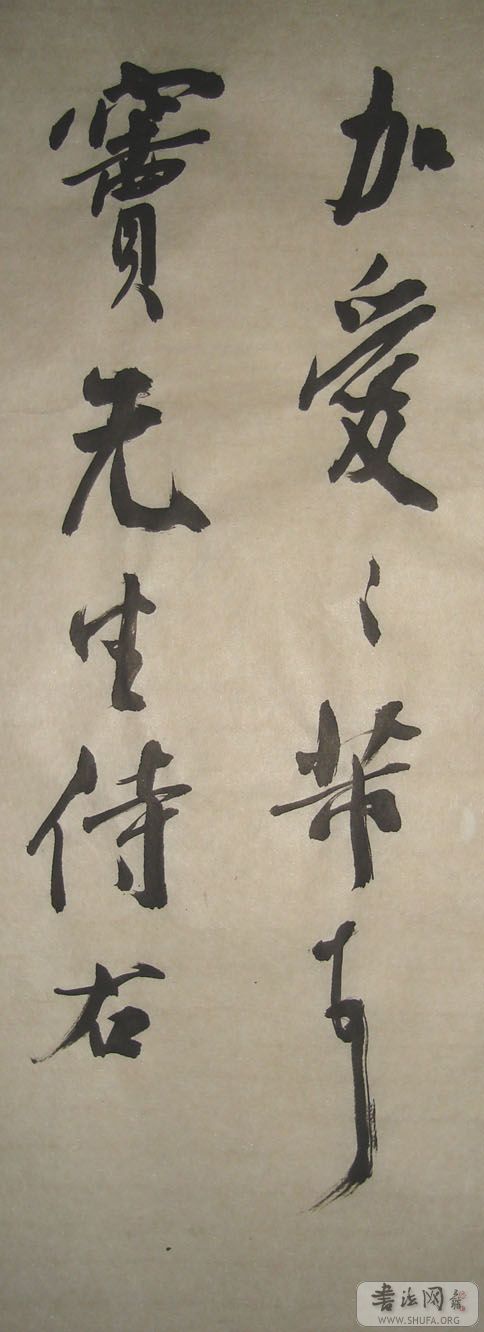 加愛〻芾
竇先生侍右
書法网
WWW.SHUFA.ORG